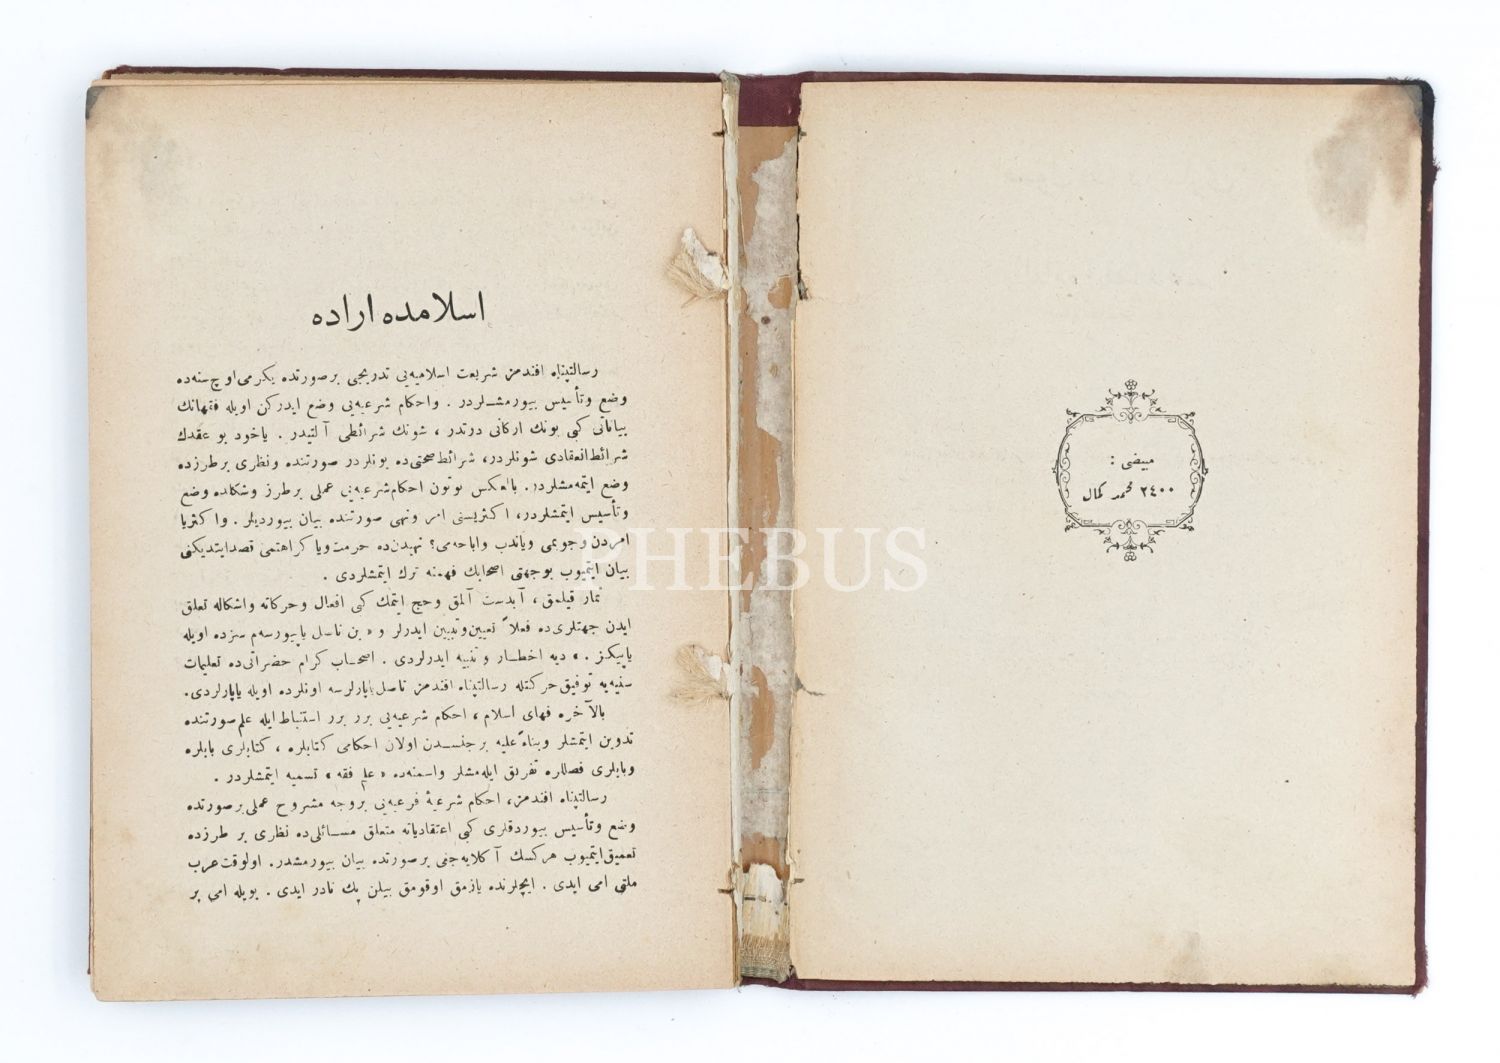 مبيضی :
٢٤٠٠ محمد كمال
اسلامده اراده
رسالتپناه افندمز شريعت اسلاميه‌يی تدريجی برصورتده يكرمی‌اوچ‌سنه‌ده
وضع وتأسيس بيورمشلردر . واحكام شرعيه‌يی وضع ايدركن اويله فقهانك
بياناتی كبی بونك اركانی درتدر ، شونك شرائطی آلتيدر . ياخود بو عقدك
شرائط‌انعقادی شونلردر، شرائط صحتی‌ده بونلردر صورتنده ونظری برطرزده
وضع ايتمه‌مشلردر. بالعكس بوتون احكام‌شرعيه‌يی عملی برطرز وشكلده وضع
وتأسيس ايتمشلردر، اكثريسنی امر ونهی صورتنده بيان بيورديلر . واكثريا
امردن وجوبمی وياندب واباحه‌می؟ نهيدن‌ده حرمت‌ويا كراهتمی قصدايتديكنی
بيان ايتميوب بوجهتی اصحابك فهمنه ترك ايتمشلردی .
نماز قيلمق ، آبدست آلمق وحج ايتمك كبی افعال وحركاته واشكاله تعلق
ايدن جهتلری‌ده فعلاً تعيين‌وتبيين ايدرلر و « بن ناصل ياپيورسه‌م سزده اويله
ياپيكز . » ديه اخطار و تنبيه ايدرلردی . اصحاب كرام حضراتی‌ده تعليمات
سنيه‌يه توفيق حركتله رسالتپناه افندمز ناصل‌ياپارلرسه اونلرده اويله ياپارلردی.
بالآخره فقهای اسلام ، احكام شرعيه‌يی برر برر استنباط ايله علم‌صورتنده
تدوين ايتمشلر وبناءً عليه برجنسدن اولان احكامی كتابلره ، كتابلری بابلره
وبابلری فصللره تفريق ايله‌مشلر واسمنه‌ده « علم فقه » تسميه ايتمشلردر .
رسالتپناه افندمز، احكام شرعيۀ فرعيه‌يی بروجه مشروح عملی‌برصورتده
وضع وتأسيس بيوردقلری كبی اعتقادياته متعلق مسائلی‌ده نظری بر طرزده
تعميق‌ايتميوب هركسك آكلايه‌جغی برصورتده بيان بيورمشدر. اولوقت‌عرب
ملتی امی ايدی . ايچلرنده يازمق اوقومق بيلن پك نادر ايدی . بويله امی بر
PHEBUS